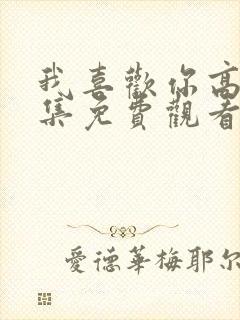 我喜歡你高
集免費觀看
愛德華梅耶尔